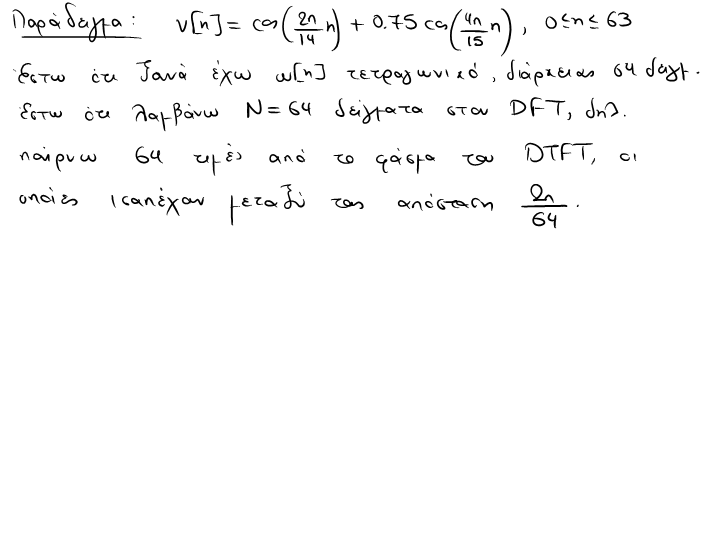 Παράδειγμα: v[n] = cos(2π/14 n) + 0.75 cos(4π/15 n), 0≤n≤63
Έστω ότι ξανά έχω w[n] τετραγωνικό, διάρκειας 64 δειγμ.
Έστω ότι λαμβάνω N=64 δείγματα στον DFT, δηλ.
παίρνω 64 τιμές από το φάσμα του DTFT, οι
οποίες ισαπέχουν μεταξύ τους απόσταση 2π/64.